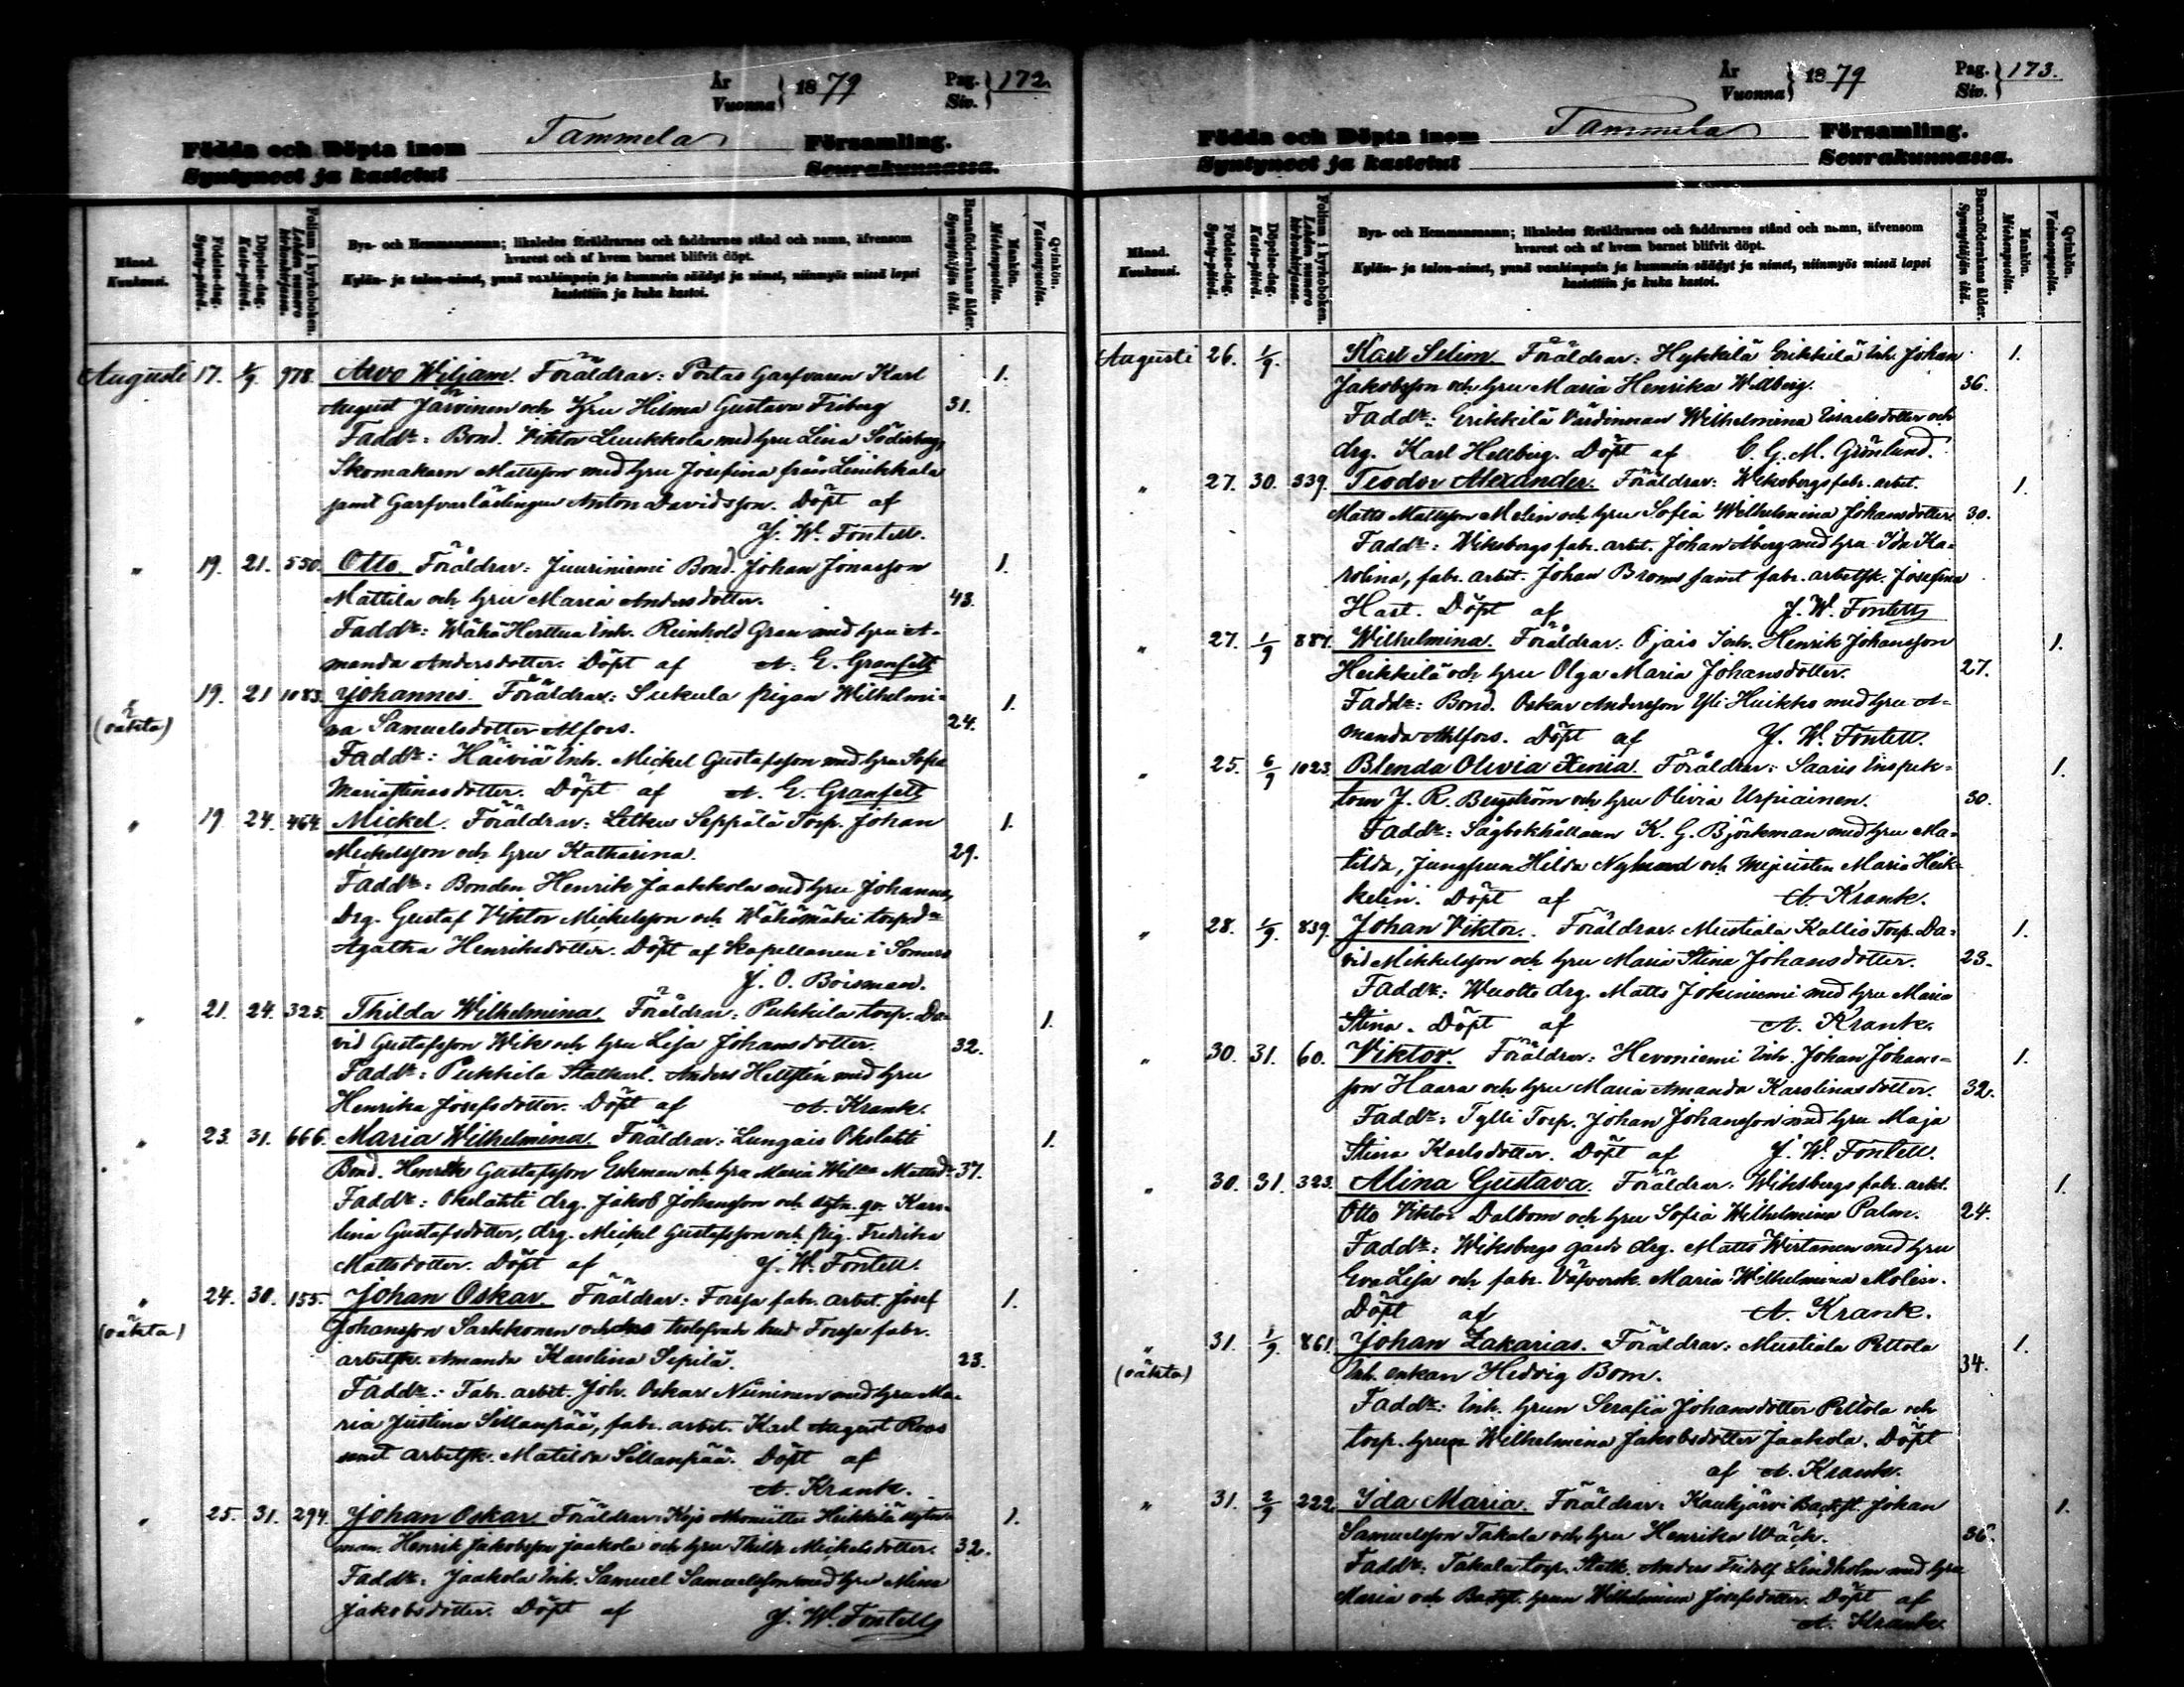 År
Vuonna } 1879 Pag.
Siv. } 172.
Födda och Döpta inom Tammela Församling.
Syntyneet ja kastetut Seurakunnassa.
Månad.
Kuukausi.
Födelse-dag.
Synty-päivä.
Döpelse-dag.
Kaste-päivä.
Folium i kyrkoboken.
Lehden numero kirkonkirjassa.
Bya- och Hemmansnamn; likaledes föräldrarnes och faddrarnes stånd och namn, äfvensom
hvarest och af hvem barnet blifvit döpt.
Kylän- ja talon-nimet, ynnä vanhimpain ja kummein säädyt ja nimet, niinmyös missä lapsi
kastettiin ja kuka kastoi.
Barnaföderskans ålder.
Synnyttäjän ikä.
Mankön.
Miehenpuolia.
Qvinkön.
Vaimonpuolia.
Augusti 17. 978. Arvo Wiljam. Föräldrar: Portas Garfvaren Karl 1.
August Järvinen och hru Hilma Gustava Friberg 31.
Faddr: Bond. Viktor Liukkola med hru Lina Söderberg,
Skomakarn Mattsson med hru Josefina från Liukkala
samt Garfvarlärlingen Anton Davidsson. Döpt af
J. W. Fontell.
" 19. 21. 550. Otto. Föräldrar: Juuriniemi Bond. Johan Jonasson 1.
Mattila och hru Maria Andersdotter. 43.
Faddr: Wähä Herttua Inh. Reinhold Gran med hru A-
manda Andersdotter. Döpt af A. E. Granfelt
" 19. 21 1083. Johannes. Föräldrar: Sukula pigan Wilhelmi- 1.
(oäkta) na Samuelsdotter Alfors. 24.
Faddr: Häiviä Inh. Mickel Gustafsson med hru Sofia
Mariastinasdotter. Döpt af A. E. Granfelt
" 19 24. 464. Mickel. Föräldrar: Letku Seppälä Torp. Johan 1.
Mickelsson och hru Katharina. 29.
Faddr: Bonden Henrik Jaakkola med hru Johanna,
Drg. Gustaf Viktor Mickelsson och Wähämäki torpd
Agatha Henriksdotter. Döpt af Kapellanen i Somero
J. O. Boisman.
" 21. 24. 325. Thilda Wilhelmina. Föräldrar: Pukkila torp. Da- 1.
vid Gustafsson Wik och hru Lisa Johansdotter. 32.
Faddr: Pukkila Statkarl. Anders Hellstén med hru
Henrika Josefsdotter. Döpt af A. Krank.
" 23. 31. 666. Maria Wilhelmina. Föräldrar: Lungais Okslahti 1.
Bond. Henrik Gustafsson Eskman och hru Maria Wilha Mattsd. 37.
Faddr: Okslahti drg. Jakob Johansson och dytn. qv. Karo-
lina Gustafsdotter, drg. Mickel Gustafsson och pig. Fredrika
Mattsdotter. Döpt af J. W. Fontell.
" 24. 30. 155. Johan Oskar. Föräldrar: Forssa fabr. arbet. Josef 1.
(oäkta) Johansson Sarkkonen och dess trolofvade brud Forssa fabr.
arbetsk. Amanda Karolina Sepilä. 23.
Faddr: Fabr. arbet. Joh. Oskar Nieminen med hru Ma-
ria Justina Sillanpää, fabr. arbet. Karl August Roos
samt arbetsk. Matilda Sillanpää. Döpt af
A. Krank.
" 25. 31. 294. Johan Oskar. Föräldrar: Kojo Heikkilä dytn- 1.
man. Henrik Jakobsson Jaakola och hru Thilda Mickelsdotter. 32.
Faddr: Jaakola Inh. Samuel Samuelsson med hru Mina
Jakobsdotter. Döpt af J. W. Fontell
År
Vuonna } 1879 Pag.
Siv. } 173.
Födda och Döpta inom Tammela Församling.
Syntyneet ja kastetut Seurakunnassa.
Månad.
Kuukausi.
Födelse-dag.
Synty-päivä.
Döpelse-dag.
Kaste-päivä.
Folium i kyrkoboken.
Lehden numero kirkonkirjassa.
Bya- och Hemmansnamn; likaledes föräldrarnes och faddrarnes stånd och namn, äfvensom
hvarest och af hvem barnet blifvit döpt.
Kylän- ja talon-nimet, ynnä vanhimpain ja kummein säädyt ja nimet, niinmyös missä lapsi
kastettiin ja kuka kastoi.
Barnaföderskans ålder.
Synnyttäjän ikä.
Mankön.
Miehenpuolia.
Qvinkön.
Vaimonpuolia.
Augusti 26. 1/9. Karl Selim. Föräldrar: Hykkilä Erikkilä Inh. Johan 1.
Jakobsson och hru Maria Henrika Widberg. 36.
Faddr: Erikkilä Värdinnan Wilhelmina Israelsdotter och
drg. Karl Hellberg. Döpt af C. G. M. Grönlund.
" 27. 30. 339. Teodor Alexander. Föräldrar: Wiksbergs fabr. arbet. 1.
Matts Mattsson Melin och hru Sofia Wilhelmina Johansdotter. 30.
Faddr: Wiksbergs fabr. arbet. Johan Åberg med hru Ida Ka-
rolina, fabr. arbet. Johan Broms samt fabr. arbetsk. Josefina
Hart. Döpt af J. W. Fontell
" 27. 1/9 887. Wilhelmina. Föräldrar: Ojais Inh. Henrik Johansson 1.
Heikkilä och hru Olga Maria Johansdotter. 27.
Faddr: Bond. Oskar Andersson Yli Huikko med hru A-
manda Ahlfors. Döpt af J. W. Fontell.
" 25. 6/9 1023. Blenda Olivia Xenia. Föräldrar: Saaris Inspek- 1.
torn J. R. Bergström och hru Olivia Urpiainen. 30.
Faddr: Sågbokhållaren K. G. Björkman med hru Ma-
tilda, Jungfrun Hilda Nylund och Mejersten Maria Heik-
kelin. Döpt af A. Krank.
" 28. 1/9. 839. Johan Viktor. Föräldrar: Mustiala Kallio Torp. Da- 1.
vid Mikkelsson och hru Maria Stina Johansdotter. 23.
Faddr: Wuolto drg. Matts Jokiniemi med hru Maria
Stina. Döpt af A. Krank.
" 30. 31. 60. Viktor. Föräldrar: Hevoniemi Inh. Johan Johans- 1.
son Haara och hru Maria Amanda Karolinasdotter. 32.
Faddr: Tylli Torp. Johan Johansson med hru Maja
Stina Karlsdotter. Döpt af J. W. Fontell.
" 30. 31. 323. Alina Gustava. Föräldrar: Wiksbergs fabr. arbet. 1.
Otto Viktor Dalbom och hru Sofia Wilhelmina Palm. 24.
Faddr: Wiksbergs gårds drg. Matts Wirtanen med hru
Eva Lisa och fabr. Väfversk. Maria Wilhelmina Molin.
Döpt af A. Krank.
" 31. 1/9. 861. Johan Zakarias. Föräldrar: Mustiala Peltola 1.
(oäkta) Inh. enkan Hedvig Bom. 34.
Faddr: Inh. hrun Serafia Johansdotter Peltola och
torp. hrun Wilhelmina Jakobsdotter Jaakola. Döpt
af A. Krank.
" 31. 2/9 222. Ida Maria. Föräldrar: Kaukjärvi Backst. Johan 1.
Samuelsson Takala och hru Henrika Wäck. 36.
Faddr: Takala torp. Statk. Anders Fridolf Lindholm med hru
Maria och Backst. hrun Wilhelmina Josefsdotter. Döpt af
A. Krank.